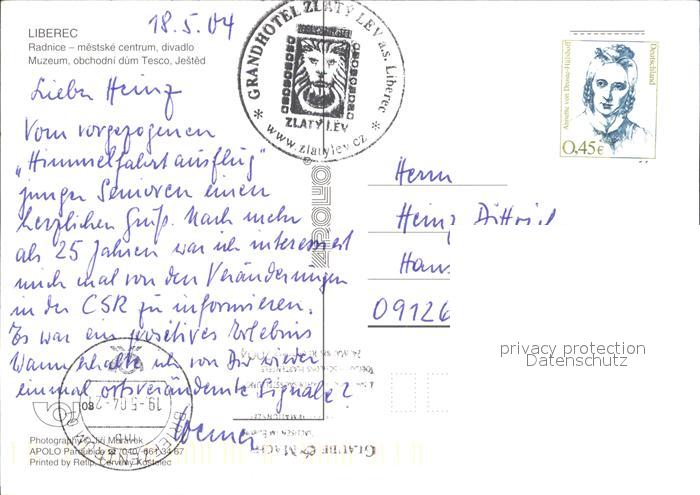 LIBEREC
Radnice – městské centrum, divadlo
Muzeum, obchodní dům Tesco, Ještěd
18.5.04
GRANDHOTEL ZLATÝ LEV a.s. Liberec
ZLATÝ LEV
* www.zlatylev.cz *
Annette von Droste-Hülshoff
Deutschland
0,45€
Lieber Heinz
Vom vorgezogenen
„Himmelfahrtausflug"
junger Senioren einen
herzlichen Gruß. Nach mehr
als 25 Jahren war ich interessiert
mich mal von den Veränderungen
in der CSR zu informieren.
Es war ein positives Erlebnis
Wann erhalte ich von Dir wieder
einmal ortsverändernte Signale?
Werner
APOLO
Herrn
Heinz Dittrich
Hans
09126
privacy protection
Datenschutz
BRIEFZENTRUM
19.5.04-2
80
mb
GLAUBE & MACHT
Photography © Jiří Moravek
APOLO Pardubice ☏ 040/ 661 34 67
Printed by Retip. Červený Kostelec